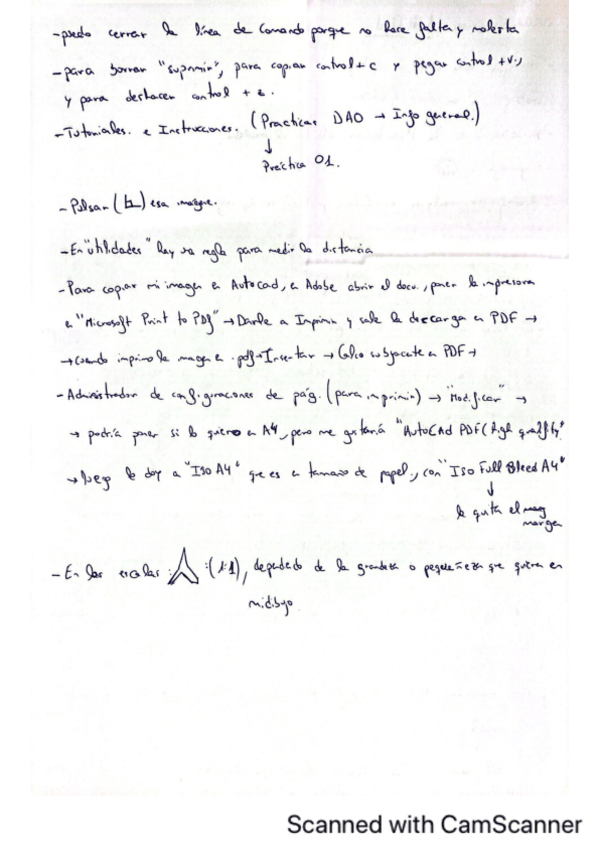 -puedo cerrar la línea de comando porque no hace falta y molesta
-para borrar "suprimir", para copiar control+c y pegar control +v.,
y para deshacer control + z.
-Tutoriales. e Instrucciones. (Practicas DAO → Info general.)
↓
Práctica 01.
-Pulsar ( ) esa imagen.
-En "utilidades" hay una regla para medir la distancia
-Para copiar mi imagen en Autocad, en Adobe abrir el docu., poner la impresora
en "Microsoft Print to PDF" → Darle a Imprimir y sale la descarga en PDF →
→ Cuando imprimo la imagen en .pdf → Insertar → Calco subyacente en PDF →
-Administrador de configuraciones de pág. (para imprimir) → "Modificar" →
→ podría poner si lo quiero en A4, pero me gustaría "AutoCAD PDF (High quality"
→ luego le doy a "ISO A4" que es en tamaño de papel, con "Iso Full Bleed A4"
↓
le quita el
margen
-En las escalas : (1:1), dependiendo de la grandeza o pequeñeza que quiera en
mi dibujo
Scanned with CamScanner